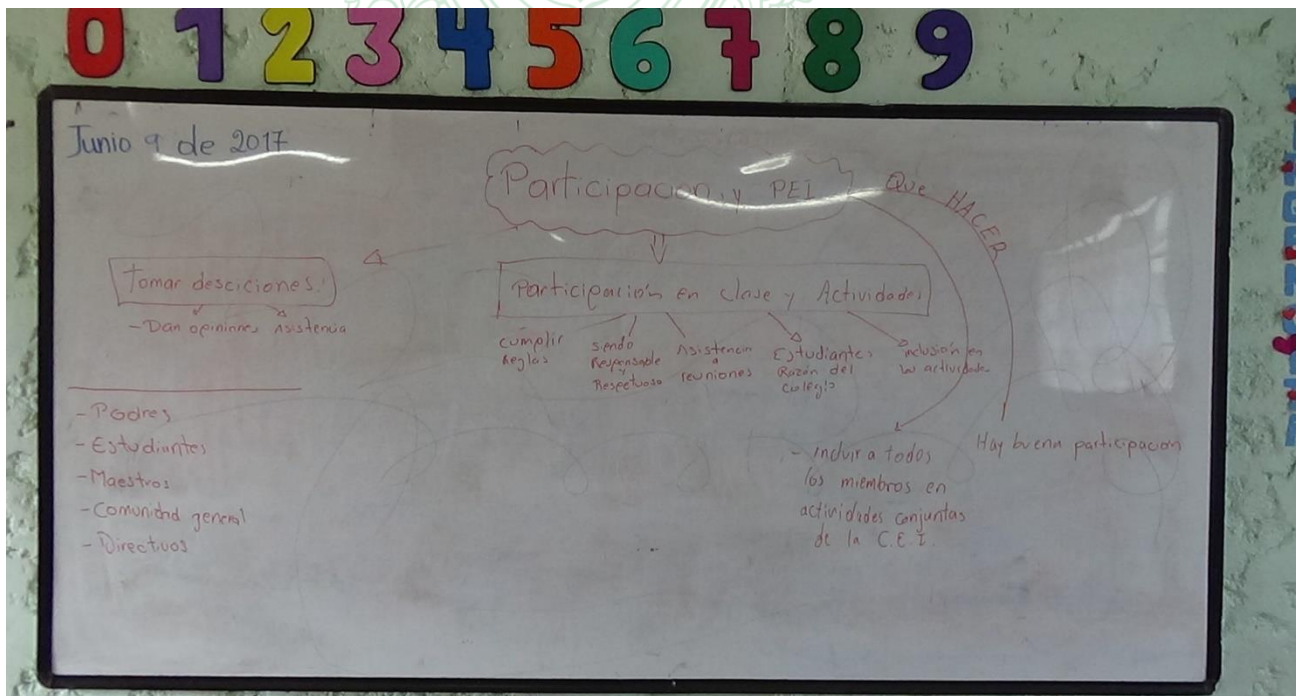 0 1 2 3 4 5 6 7 8 9
Junio 9 de 2017
Participacion y PEI
QUE HACER
Tomar desciciones.
- Dan opiniones Asistencia
Participación en clase y Actividades
cumplir
Reglas
siendo
Responsable
y
Respetuoso
Asistencia
a
reuniones
Estudiantes
Razón del
Colegio
inclusión en
las actividades
- Padres
- Estudiantes
- Maestros
- Comunidad general
- Directivos
- incluir a todos
los miembros en
actividades conjuntas
de la C.E.I.
Hay buena participación